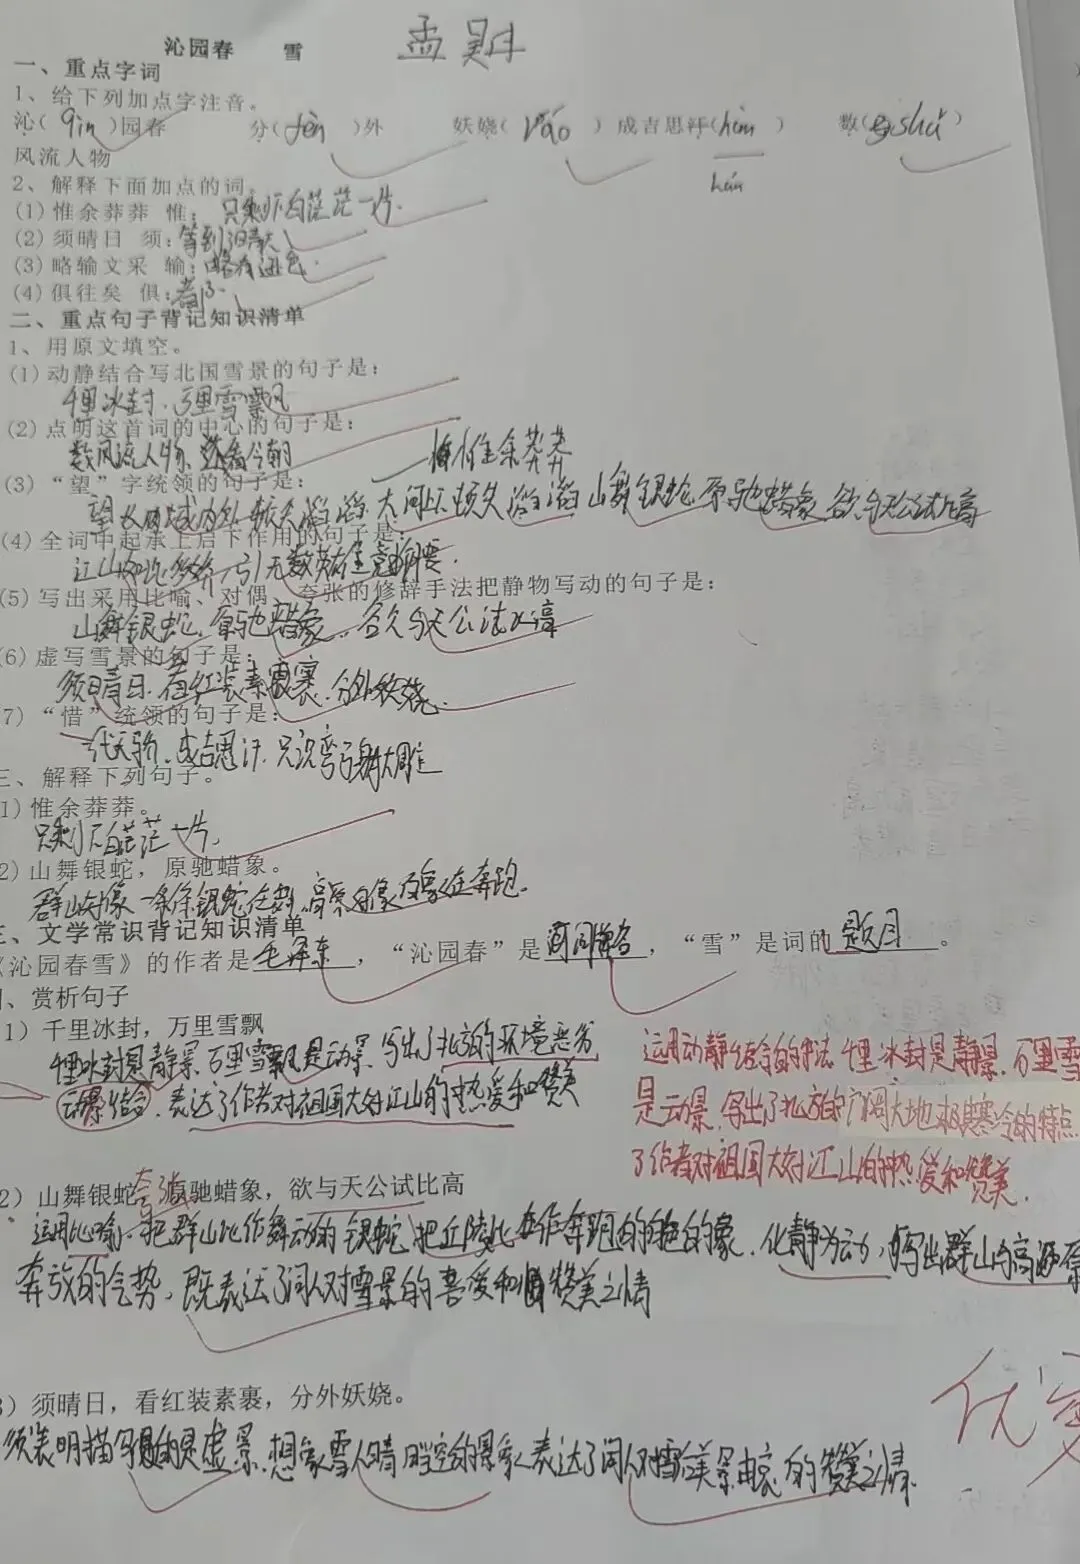 沁园春 雪 孟
一、重点字词
1、给下列加点字注音。
沁(qìn)园春 分(fèn)外 妖娆(ráo) 成吉思汗(hàn) 数(shǔ)
hán
风流人物
2、解释下面加点的词
(1)惟余莽莽 惟：只剩下白茫茫一片.
(2)须晴日 须：等到晴天
(3)略输文采 输：略有逊色.
(4)俱往矣 俱：都
二、重点句子背记知识清单
1、用原文填空。
(1)动静结合写北国雪景的句子是：
千里冰封.万里雪飘
(2)点明这首词的中心的句子是：
数风流人物、还看今朝
惟余莽莽
(3)“望”字统领的句子是：
望长城内外 大河上下 顿失滔滔 山舞银蛇 原驰蜡象 欲与天公试比高
(4)全词中起承上启下作用的句子是：
江山如此多娇 引无数英雄竞折腰.
(5)写出采用比喻、对偶、夸张的修辞手法把静物写动的句子是：
山舞银蛇，原驰蜡象，欲与天公试比高
(6)虚写雪景的句子是：
须晴日.看红装素裹.分外妖娆.
7)“惜”统领的句子是：
一代天骄.成吉思汗.只识弯弓射大雕
三、解释下列句子。
1)惟余莽莽。
只剩下白茫茫一片,
2)山舞银蛇，原驰蜡象。
群山好像一条条银蛇在舞,高原白象在奔跑.
三、文学常识背记知识清单
《沁园春雪》的作者是毛泽东，“沁园春”是词牌名，“雪”是词的题目。
、赏析句子
1)千里冰封，万里雪飘
千里冰封是静景.万里雪飘是动景.写出了北方的环境恶劣
动静结合.表达了作者对祖国大好江山的热爱和赞美
运用动静结合的手法 千里冰封是静景.万里雪
是动景.写出了北方的广阔大地极度寒冷的特点
了作者对祖国大好江山的热爱和赞美.
2)山舞银蛇，原驰蜡象，欲与天公试比高
夸张
运用比喻.把群山比作舞动的银蛇,把丘陵比作奔跑的白色的象.化静为动,写出群山
奔放的气势,既表达了词人对雪景的喜爱和赞美之情
)须晴日，看红装素裹，分外妖娆。
须表明描写的是虚景.想象雪后晴空的景象.表达了词人对雪后美景由衷的赞美之情.
优